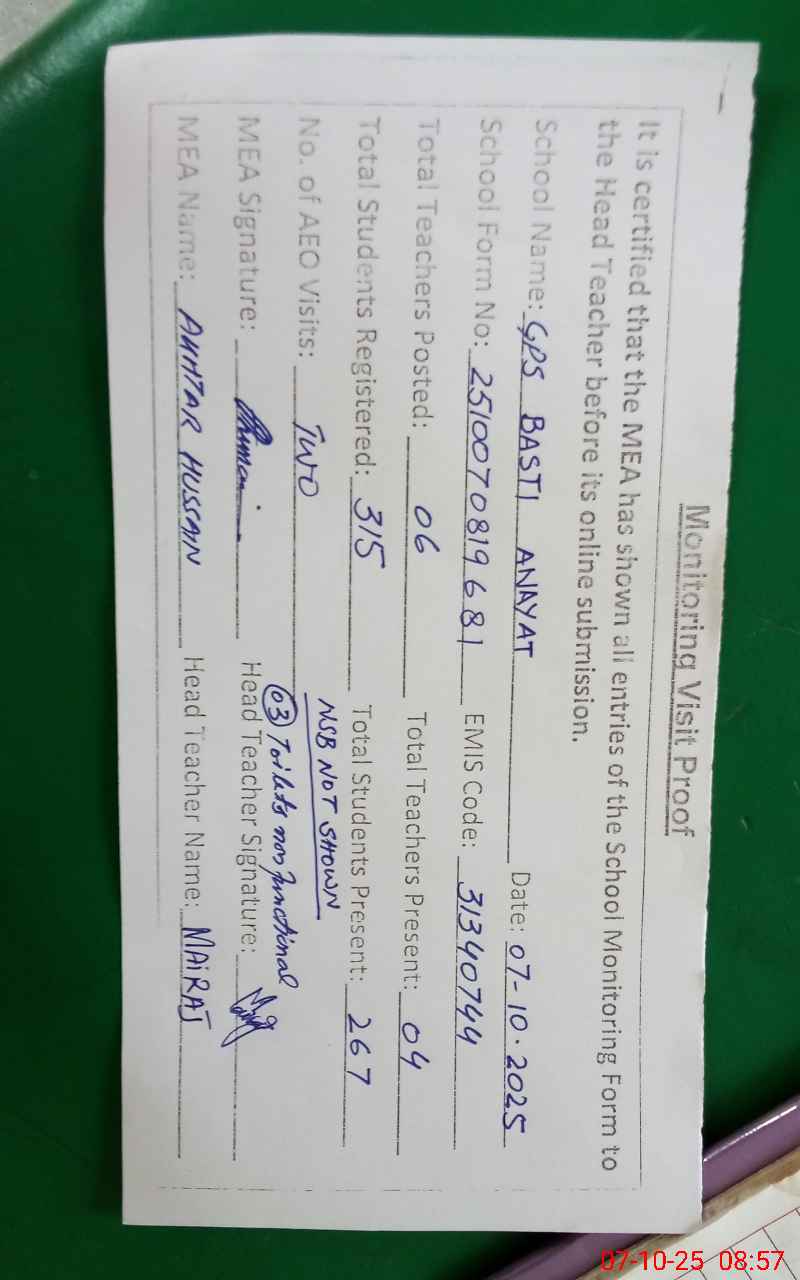 Monitoring Visit Proof
It is certified that the MEA has shown all entries of the School Monitoring Form to
the Head Teacher before its online submission.
School Name: GPS BASTI ANAYAT Date: 07-10-2025
School Form No: 2510070819681 EMIS Code: 31340744
Total Teachers Posted: 06 Total Teachers Present: 04
Total Students Registered: 315 Total Students Present: 267
No. of AEO Visits: TWO NSB NOT SHOWN
03 Toilets non functional
MEA Signature: Head Teacher Signature:
MEA Name: AKHTAR HUSSAIN Head Teacher Name: MAIRAJ
07-10-25 08:57